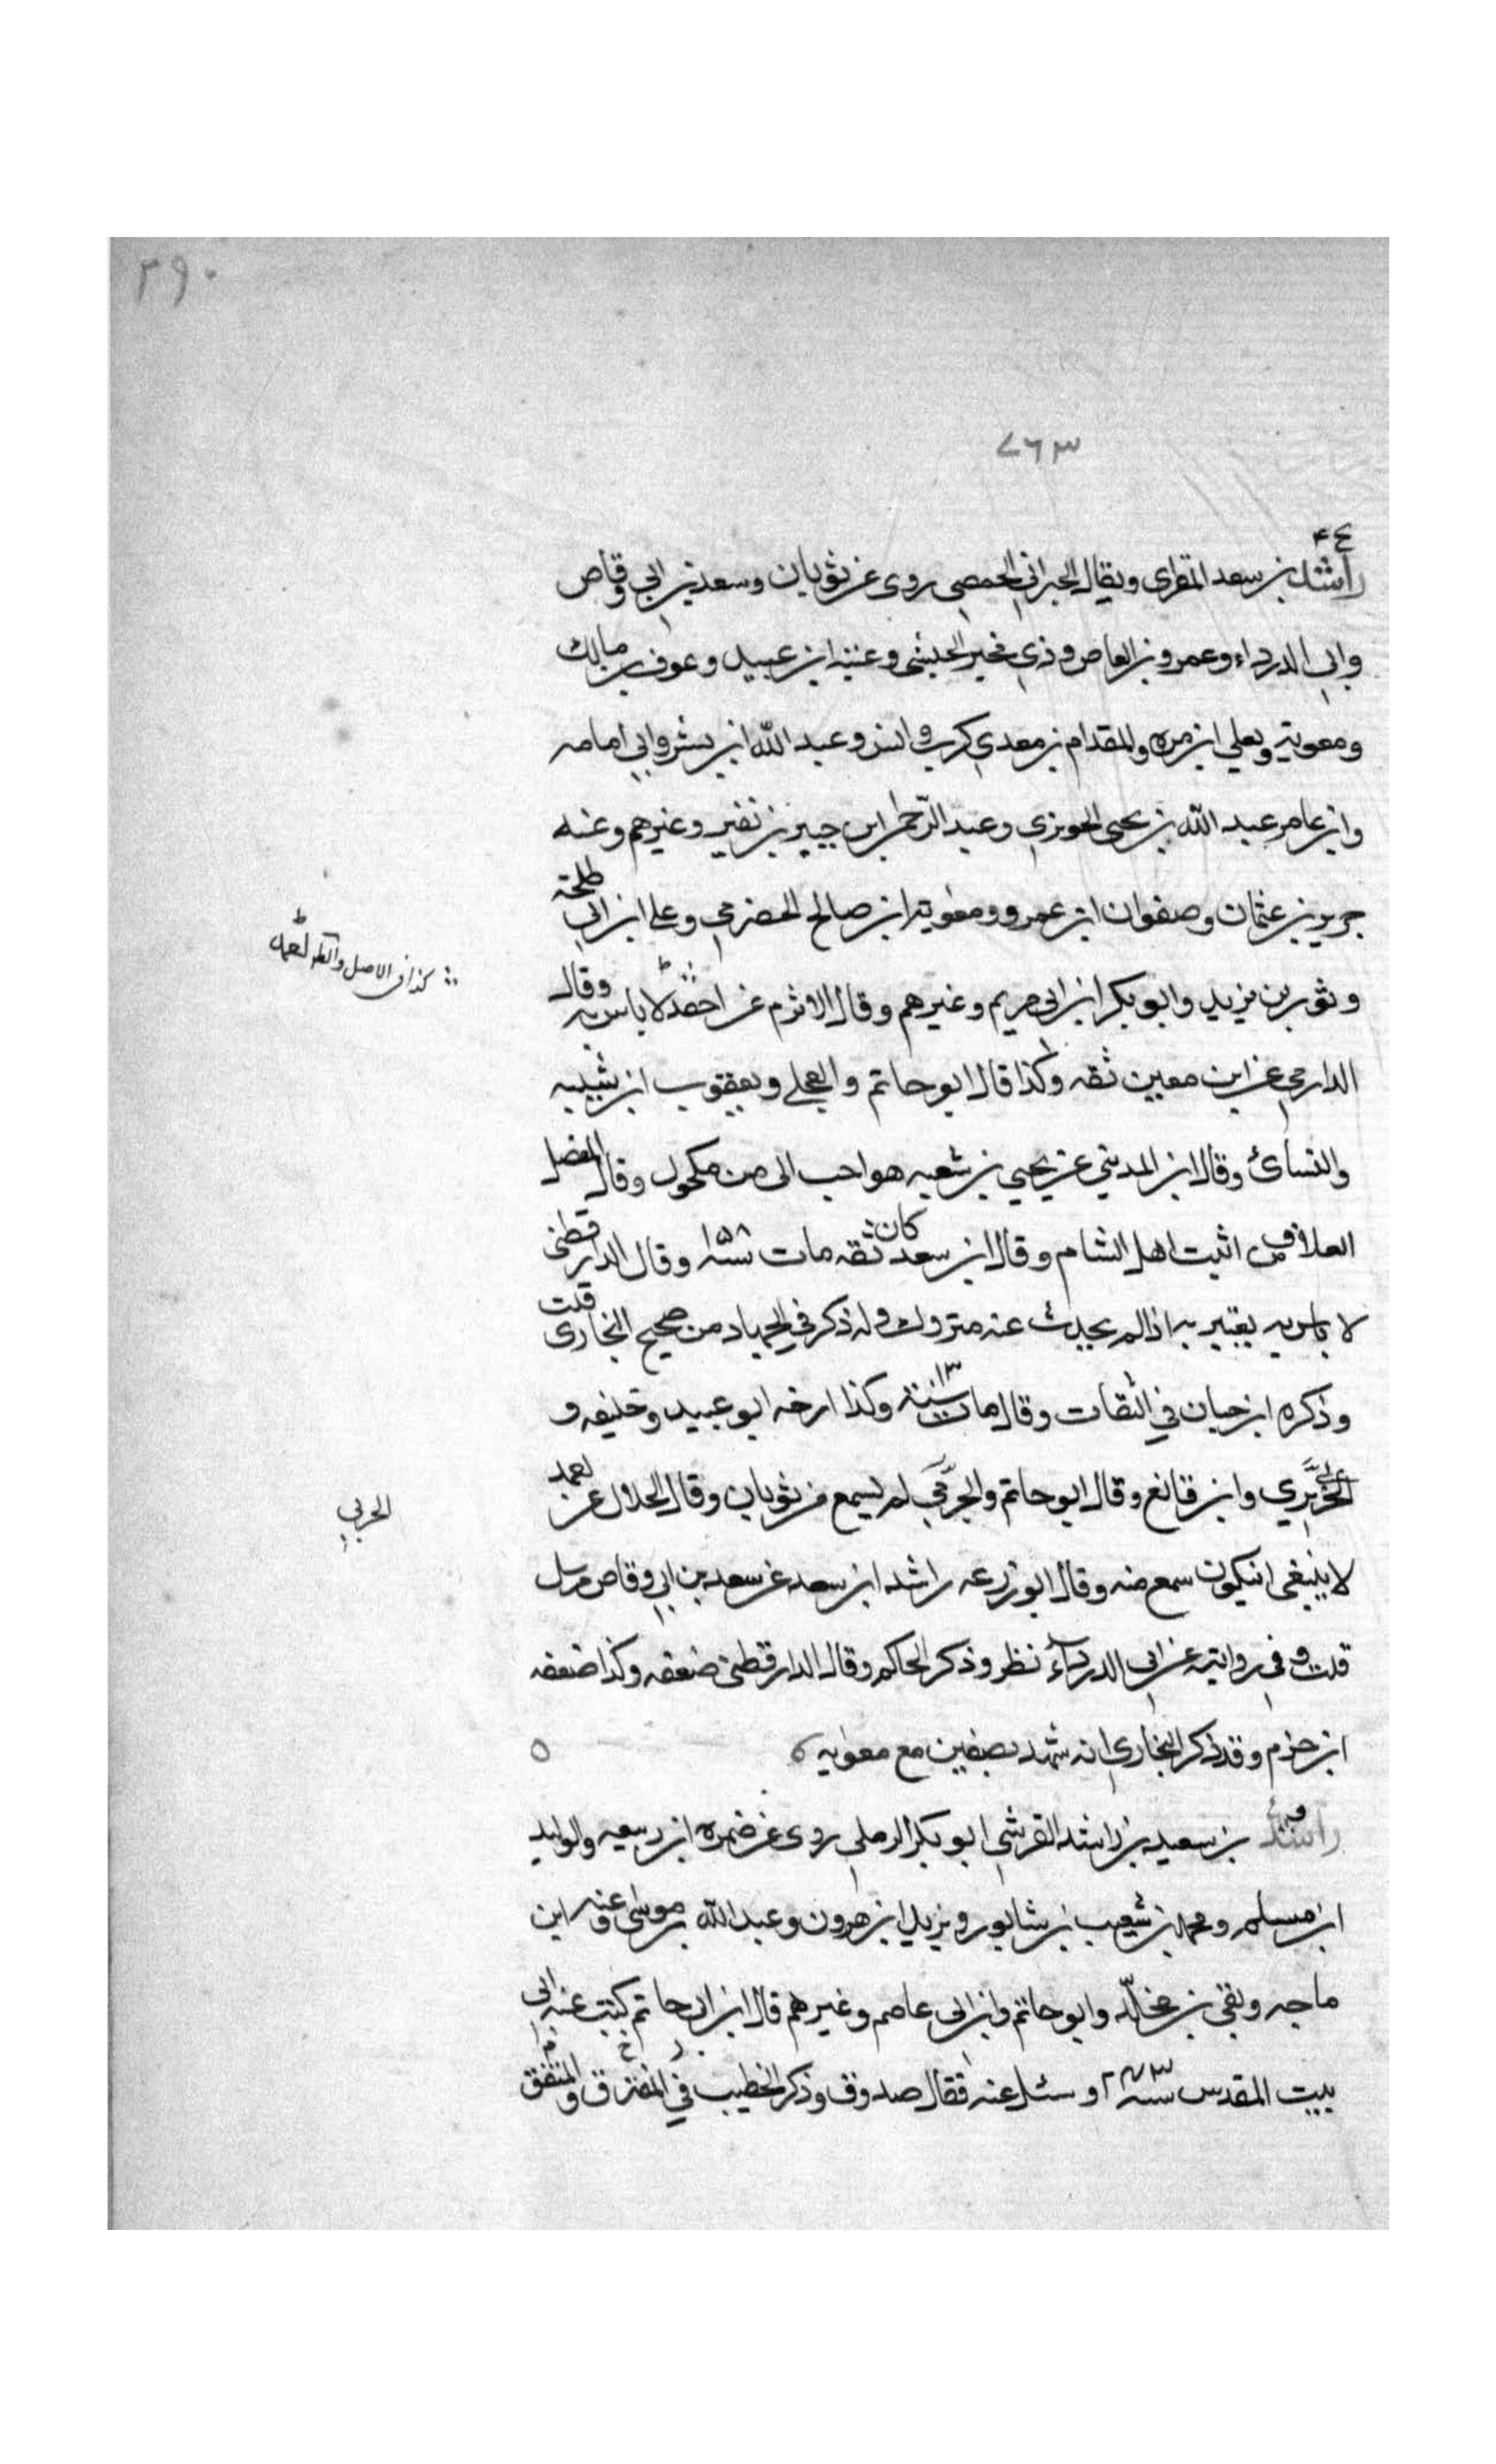 ٢٩٠
٧٦٣
ع ٤
راشد بن سعد المقرای ويقال الحبراني الحمصي روى عن ثوبان وسعد بن ابي وقاص
وابي الدرداء وعمرو بن العاص وذي مخبر الحبشي وعتبه ابن عبيد وعوف بن مالك
ومعوية ويعلي ابن مره والمقدام بن معدي كرب وانس وعبد الله ابن بسر وابي امامه
وابن عامر عبد الله بن يحيى الهوزني وعبد الرحمن ابن جبير بن نفير وغيرهم وعنه
جرير بن عثمان وصفوان ابن عمرو ومعوية ابن صالح الحضرمي وعلي ابن ابي طلحة
وثور بن يزيد وابو بكر ابن ابي مريم وغيرهم وقال الاثرم عن احمد لا باس به وقال
الدارمي عن ابن معين ثقه وكذا قال ابو حاتم والعجلي ويعقوب ابن شيبه
والنسائ وقال ابن المديني عن يحيي بن شعبه هو احب الى من مكحول وقال المفضل
العلاف من اثبت اهل الشام وقال ابن سعد كان ثقه مات سنة ١٥٨ وقال الدارقطنى
لا باس به يعتبر به اذا لم يحدث عنه متروك وله ذكر في الجهاد من صحيح البخارى قلت
وذكره ابن حبان في الثقات وقال مات سنة ١٣ وكذا ارخه ابو عبيد وخليفه و
الحربي وابن قانع وقال ابو حاتم والحربي لم يسمع من ثوبان وقال الخلال عن احمد
لا ينبغى ان يكون سمع منه وقال ابو زرعه راشد ابن سعد عن سعد بن ابي وقاص مرسل
قلت وفي روايته عن ابي الدرداء نظر وذكر الحاكم وقال الدارقطنى ضعفه وكذا ضعفه
ابن حزم وقد ذكر البخاري انه شهد بصفين مع معويه
راشد بن سعيد بن راشد القرشي ابو بكر الرملي روى عن ضمره ابن ربيعه والوليد
ابن مسلم ومحمد بن شعيب بن شابور ويزيد ابن هرون وعبد الله بن موسى وعنه ابن
ماجه وبقي بن مخلد وابو حاتم وابن ابي عاصم وغيرهم قال ابن ابي حاتم كتب عنه ابي
ببيت المقدس سنة ٢٤٣ وسئل عنه فقال صدوق وذكر الخطيب في المفترق والمتفق
كذا في الاصل
الحربي